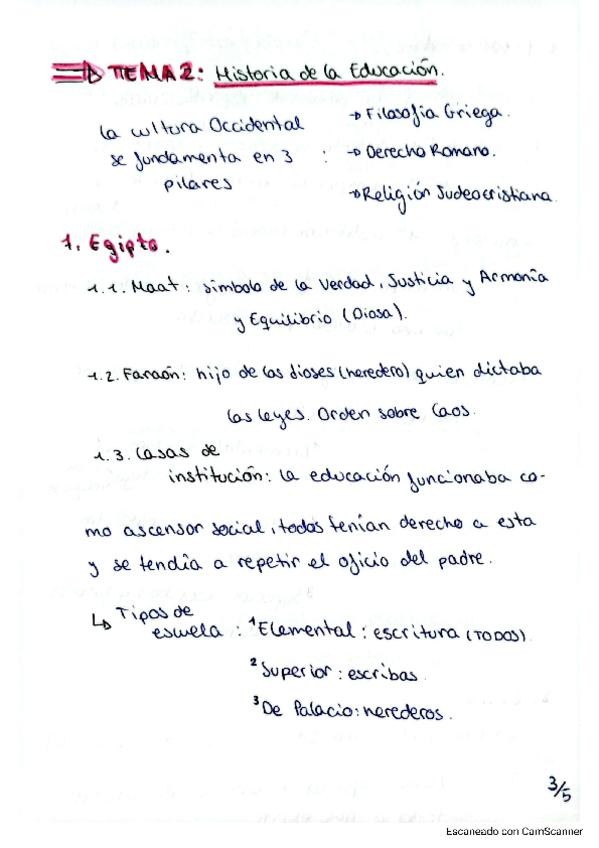 ⇒ TEMA 2: Historia de la Educación.
La cultura Occidental
se fundamenta en 3 :
pilares
→ Filosofía Griega.
→ Derecho Romano.
→ Religión Judeocristiana.
1. Egipto.
1.1. Maat: símbolo de la Verdad, Justicia y Armonía
y Equilibrio (Diosa).
1.2. Faraón: hijo de los dioses (heredero) quien dictaba
las leyes. Orden sobre Caos.
1.3. Casas de
institución: la educación funcionaba co-
mo ascensor social, todos tenían derecho a esta
y se tendía a repetir el oficio del padre.
↳ Tipos de
escuela : ¹Elemental: escritura (TODOS).
²Superior: escribas.
³De Palacio: herederos.
3/5
Escaneado con CamScanner